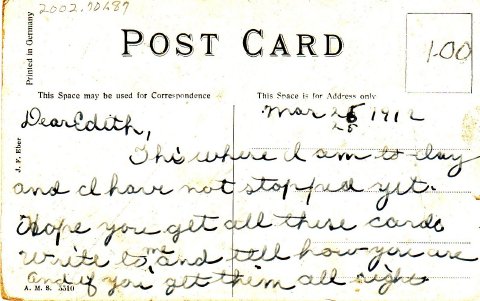 2002.70687
Printed in Germany
POST CARD
1.00
This Space may be used for Correspondence
This Space is for Address only
Mar 25 1912
25
Dear Edith,
J. F. Eber
Thi where I am to day
and I have not stopped yet.
Hope you get all these cards
write to me and tell how you are
and if you get them all right
A. M. S. 5510